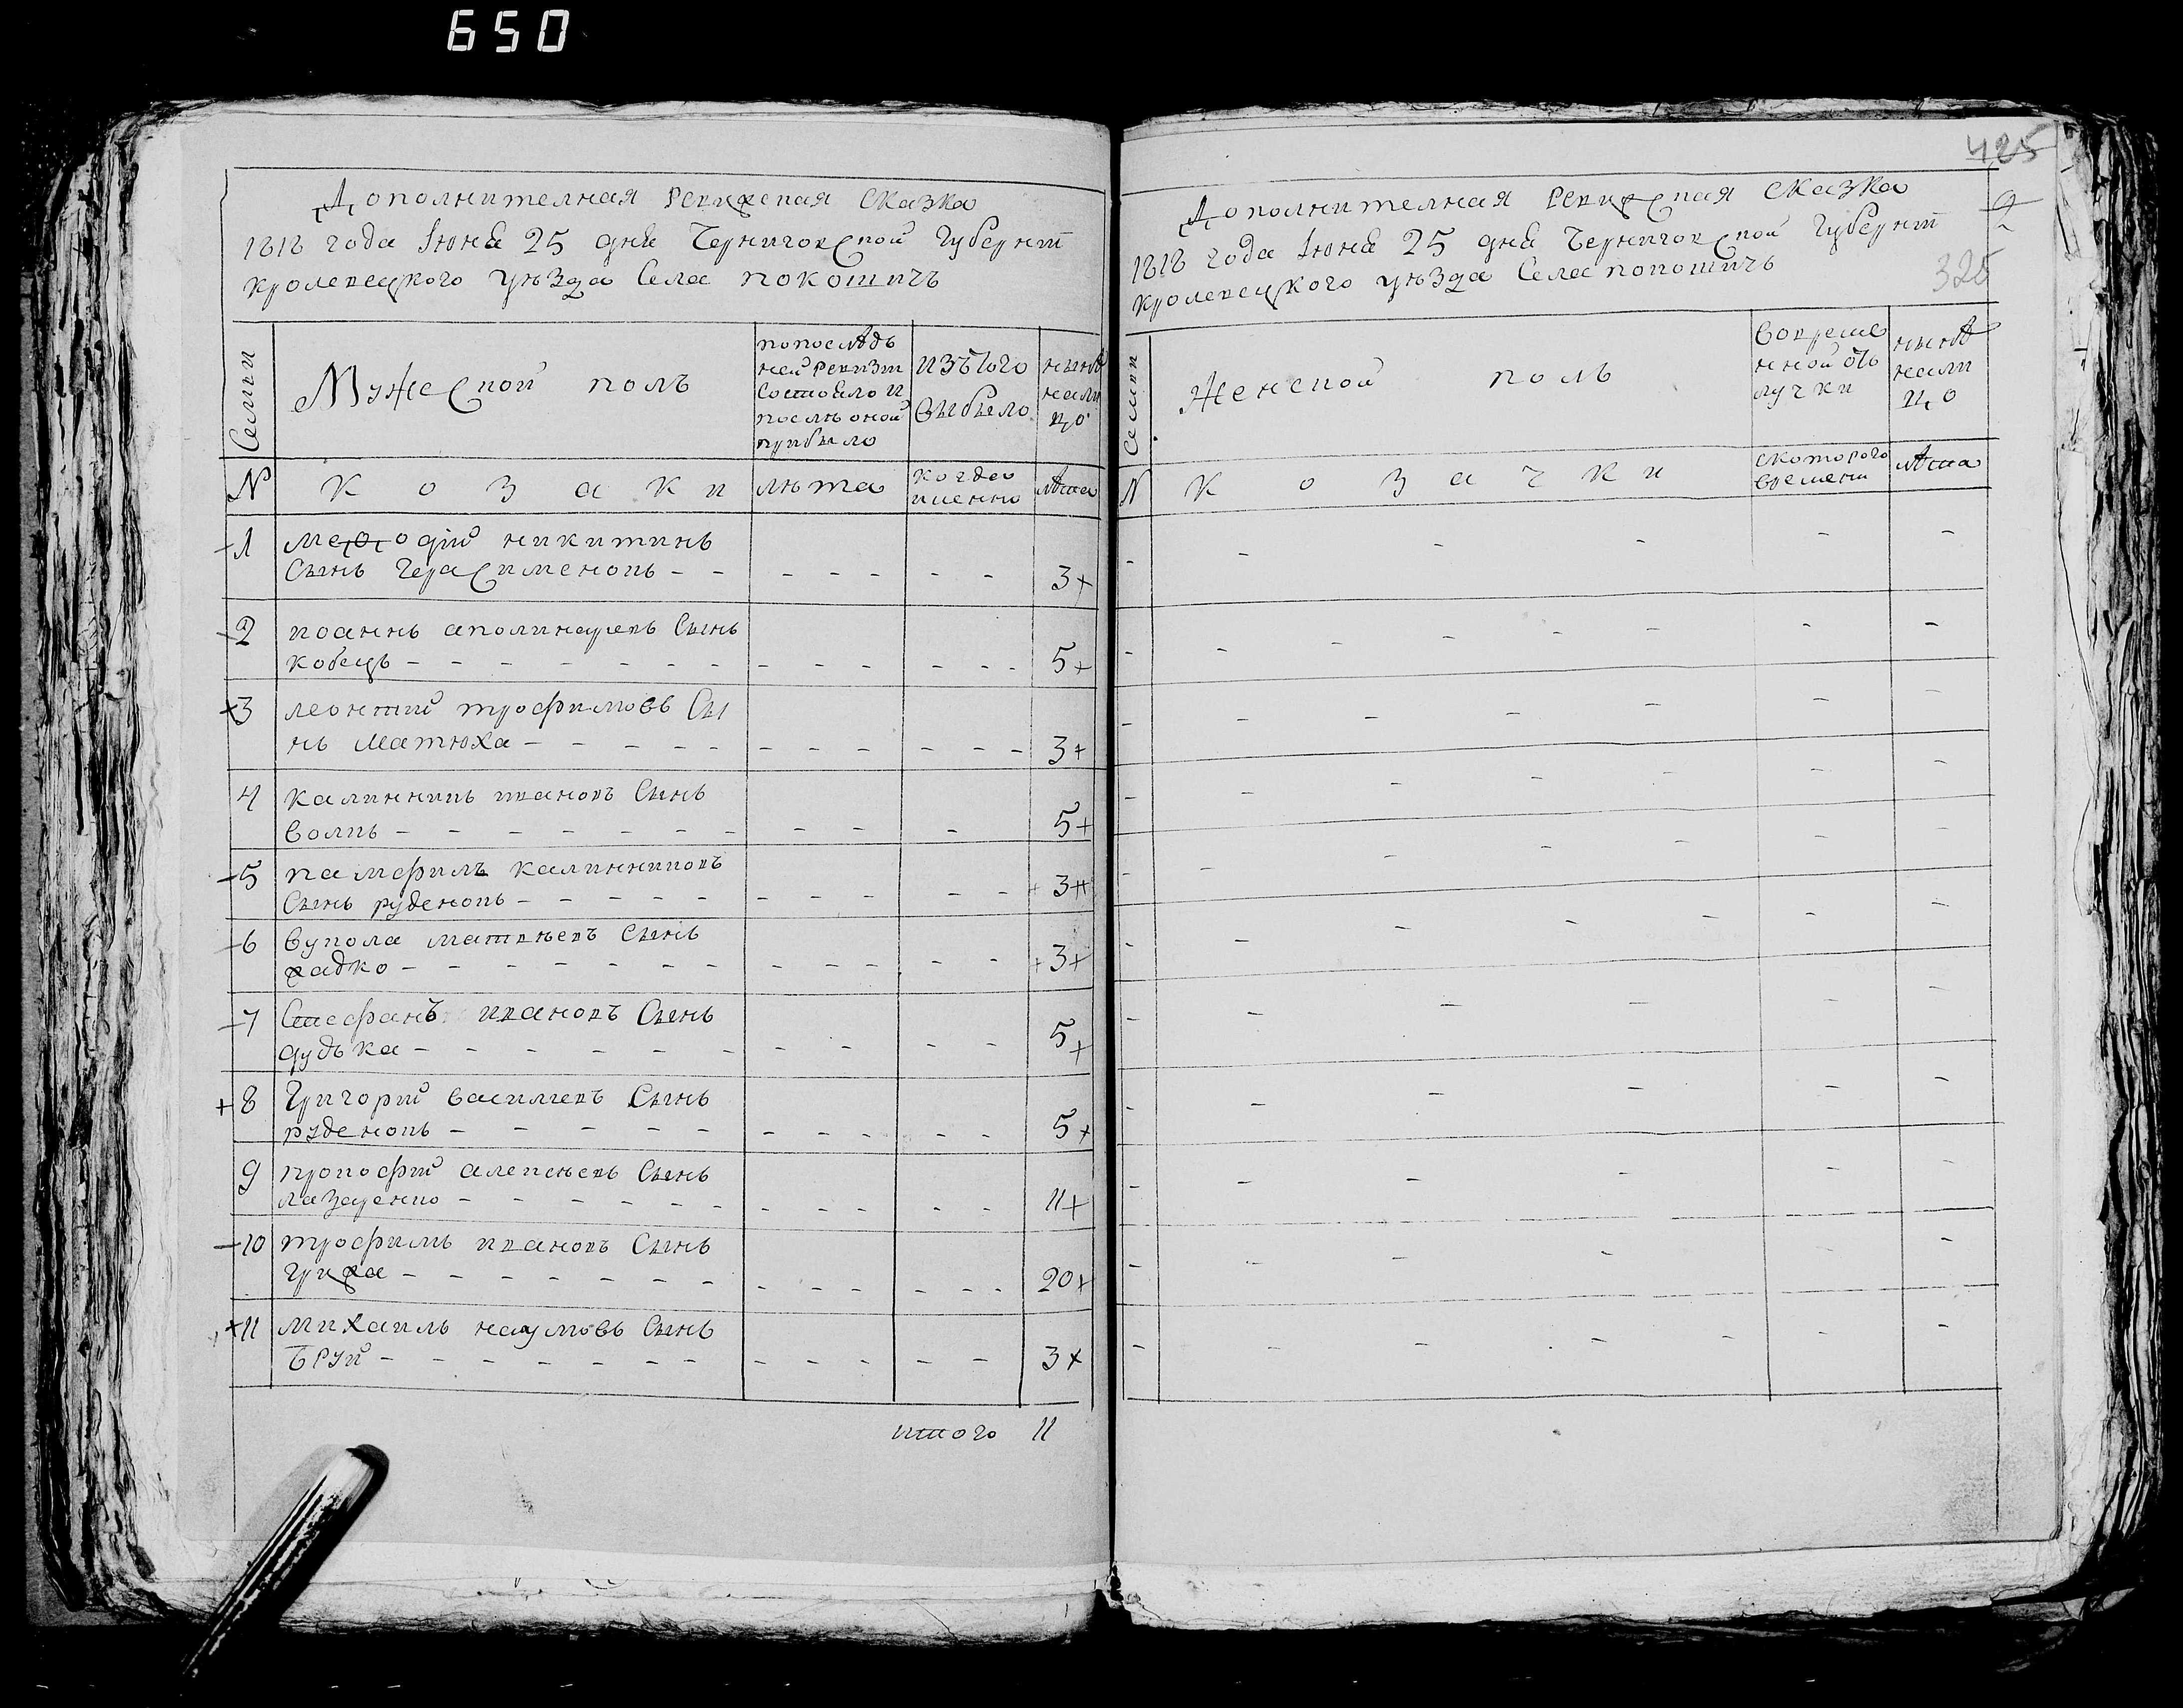 650
Дополнителная Ревизская Сказка
1818 года Июня 25 дня Черниговской Губерніи
Кролевецкого уѣзда Села Покошичъ
Семьи
Мужеской полъ
по послѣд
ней ревизіи
состояло и
послѣ оной
прибыло
изъ того
выбыло
нынѣ
нали
цо
№
Козаки
лѣта
когда
именно
лѣта
1 Меѳодій Никитинъ
Сынъ Герасименокъ - - - - - - - 3
2 Иоаннъ Аполинаревъ Сынъ
Кобецъ - - - - - - - 5
3 Леонтий Трофимовъ Сы
нъ Матюха - - - - - - - 3
4 Калинникъ Ивановъ Сынъ
Волкъ - - - - - - - 5
5 Памфилъ Калинниковъ
Сынъ Руденокъ - - - - - - - 3
6 Вукола Матвѣевъ Сынъ
- - - - - - - 3
7 Стефанъ Ивановъ Сынъ
Дудъка - - - - - - - 5
8 Григорий Василиевъ Сынъ
Руденокъ - - - - - - - 5
9 Прокофий Алексѣевъ Сынъ
Лазаренко - - - - - - - 11
10 Трофимъ Ивановъ Сынъ
- - - - - - - 20
11 Михаилъ Наумовъ Сынъ
Бруй - - - - - - - 3
итого 11
425
325
Дополнителная Ревизская Сказка
1818 года Июня 25 дня Черниговской Губерніи
Кролевецкого уѣзда Села Покошичъ
Семьи
Женской полъ
Во време
нной отъ
лучки
нынѣ
нали
цо
№
Козачки
с которого
времени
лѣта